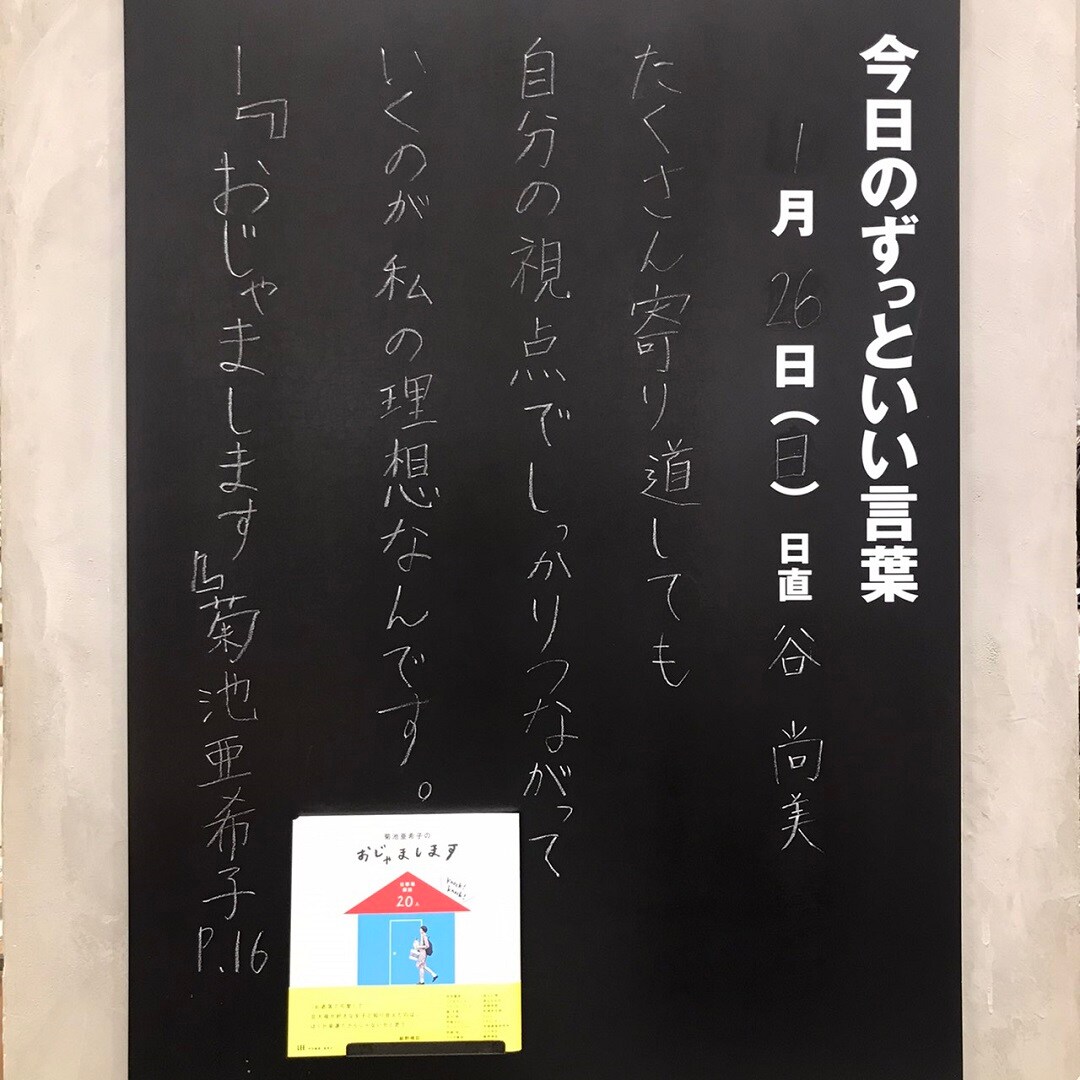 今日のずっといい言葉
1月26日(日)日直 谷 尚美
たくさん寄り道しても
自分の視点でしっかりつながって
いくのが私の理想なんです。
―『おじゃまします』菊池亜希子 P.16
菊池亜希子の
おじゃまします
knock! knock!
20人